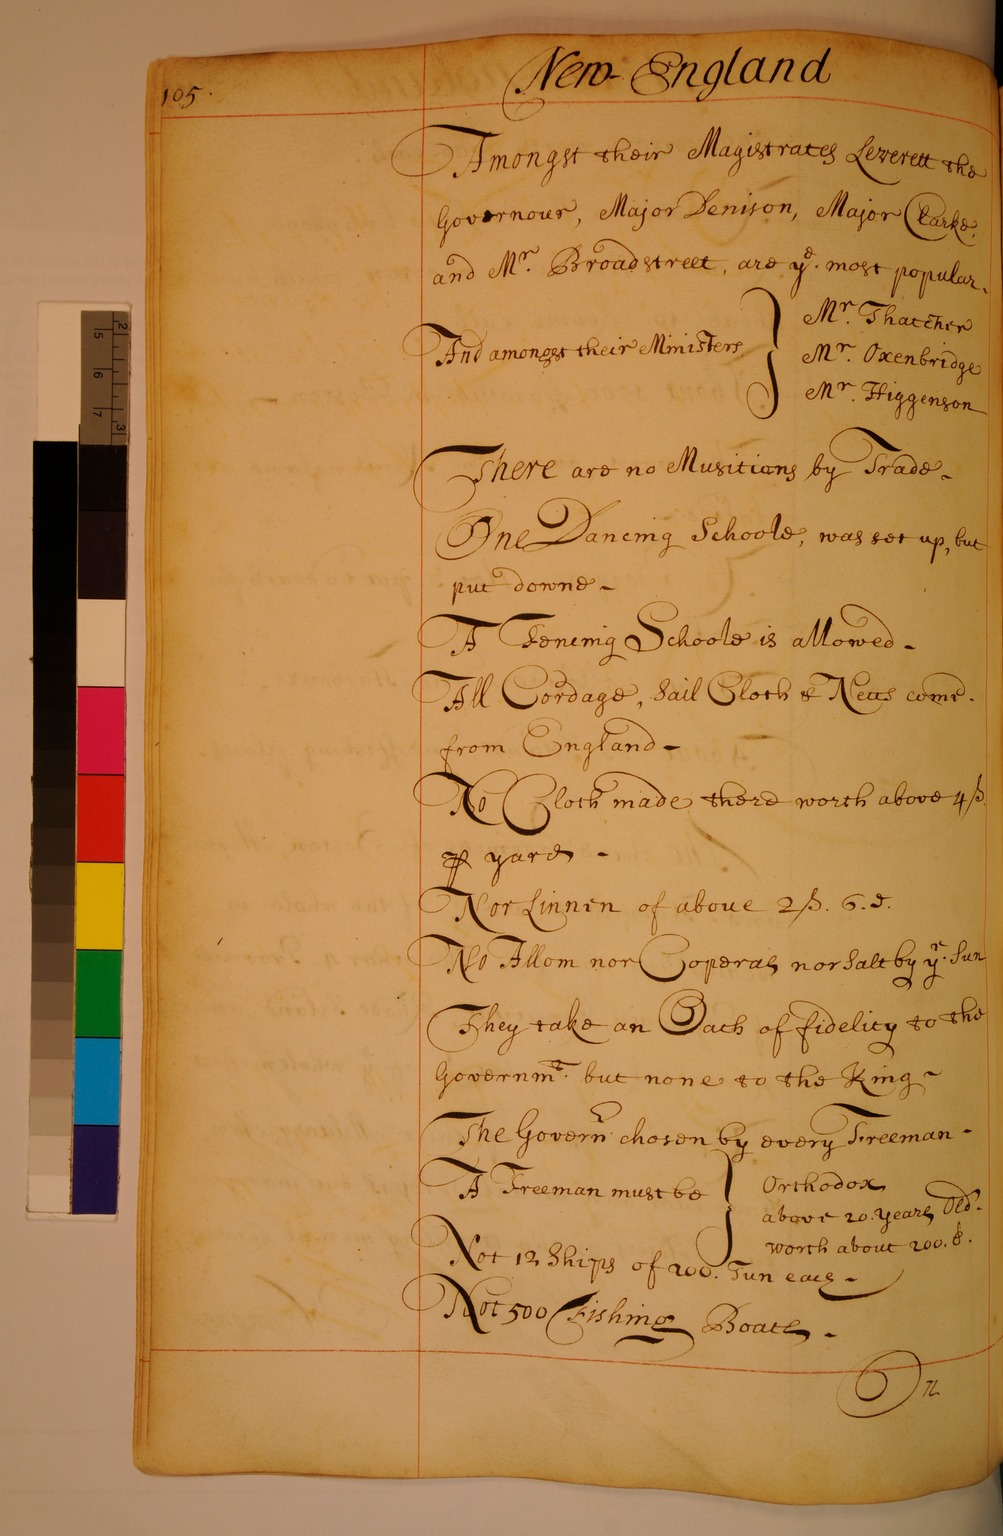 105.
New-England
Amongst their Magistrates Leverett the
Governour, Major Denison, Major Clarke,
and Mr. Broadstreet, are ye. most popular.
And amongst their Ministers
Mr. Thatcher
Mr. Oxenbridge
Mr. Higgenson
There are no Musitians by Trade-
One Dancing Schoole, was set up, but
put downe-
A Fencing Schoole is allowed-
All Cordage, Sail Cloth & Netts come
from England-
No Cloth made there worth above 4/s.
yard -
Nor Linnen of above 2/s. 6.d.
No Allom nor Coperas nor Salt by ye. Sun
They take an Oath of fidelity to the
Governmt. but none to the King-
The Governr. chosen by every Freeman-
A Freeman must be
Orthodox
above 20. years Old.
worth about 200. £.
Not 12 Ships of 200. Tun each-
Not 500 Fishing Boats-
On